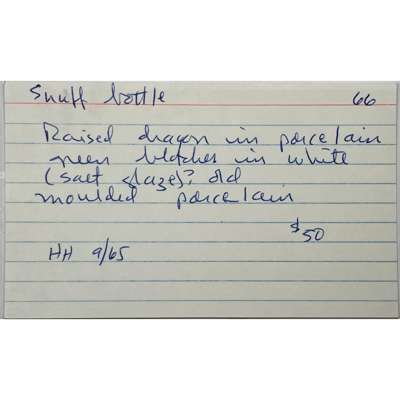 Snuff bottle 66
Raised dragon in porcelain
green blotches in white
(salt glaze)? old
moulded porcelain
$50
HH 9/65